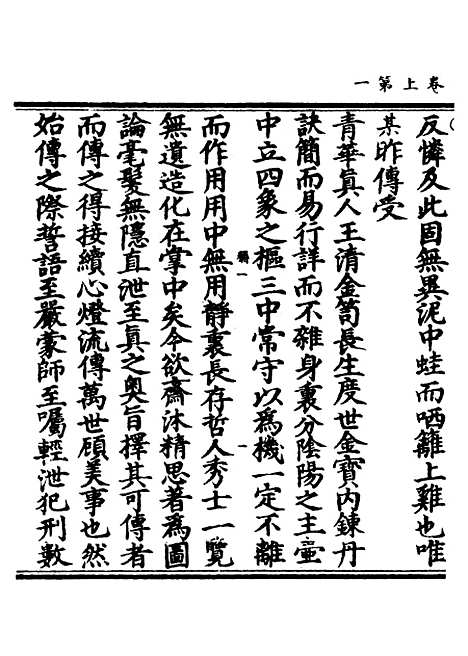 卷上第一
反憐及此固無異泥中蛙而哂籬上雞也唯
某昨傳受
青華真人王清金笥長生度世金寶內鍊丹
訣簡而易行詳而不雜身裏分陰陽之主壷
中立四象之樞三中常守以為機一定不離
而作用用中無用靜裏長存哲人秀士一覽
無遺造化在掌中矣今欲齋沐精思著為圖
論毫髮無隱直泄至真之奧旨擇其可傳者
而傳之得接續心燈流傳萬世顧美事也然
始傳之際誓語至嚴蒙師至囑輕泄犯刑數